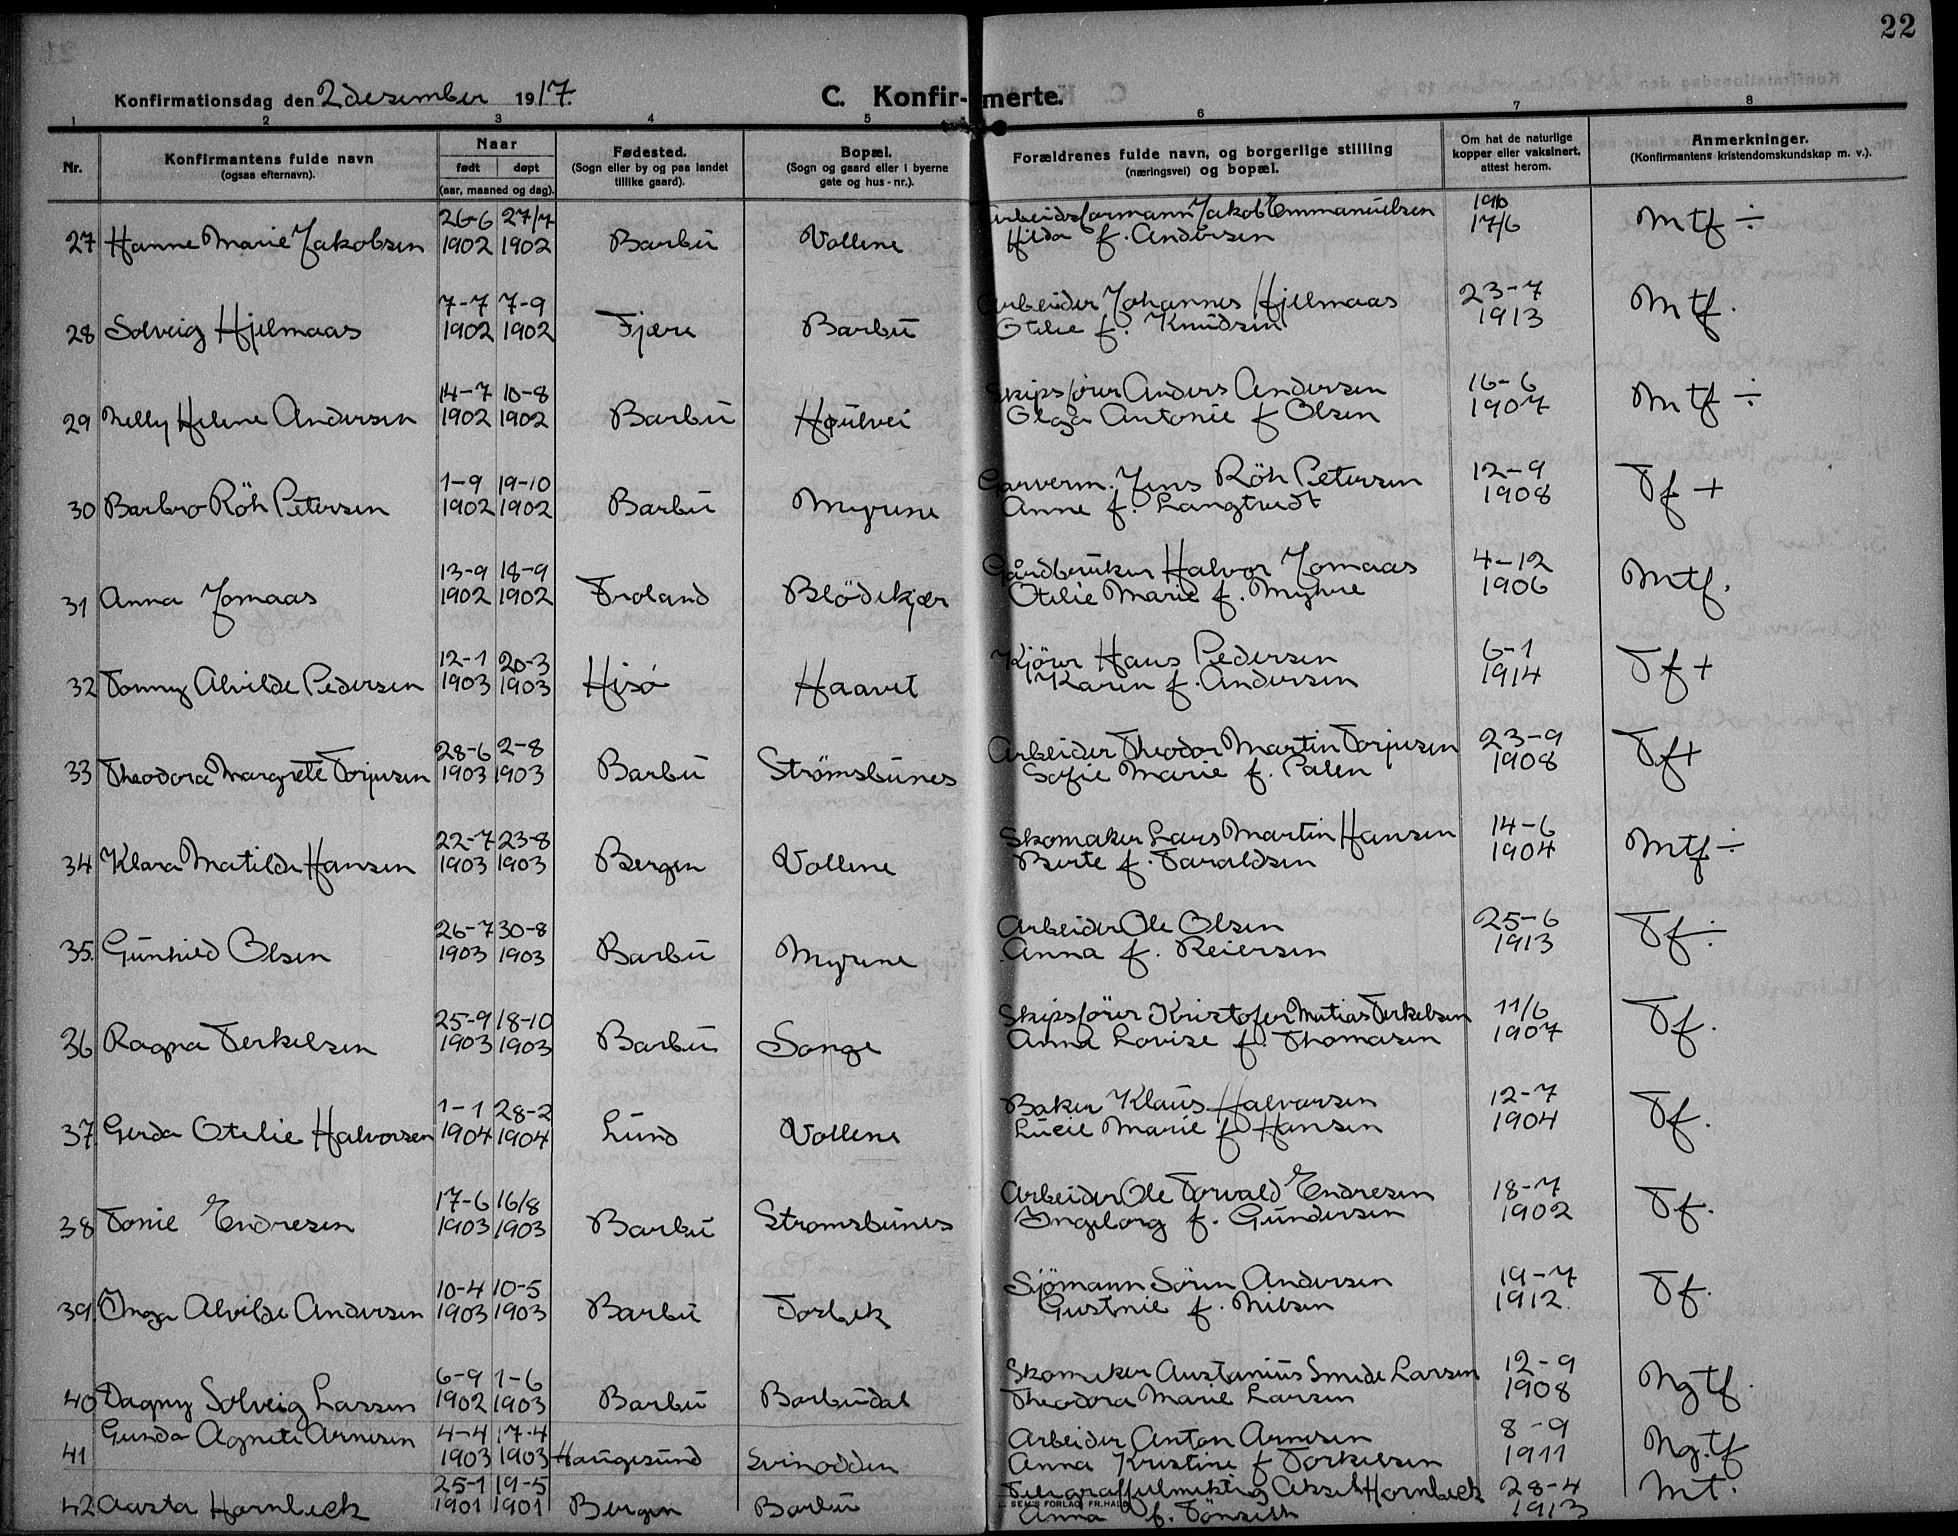 22
Konfirmationsdag den 2 desember 1917.
C. Konfir-merte.
1 2 3 4 5 6 7 8
Nr.
Konfirmantens fulde navn
(ogsaa efternavn).
Naar
født døpt
(aar, maaned og dag).
Fødested.
(Sogn eller by og paa landet
tillike gaard).
Bopæl.
(Sogn og gaard eller i byerne
gate og hus-nr.).
Forældrenes fulde navn, og borgerlige stilling
(næringsvei) og bopæl.
Om hat de naturlige
kopper eller vaksinert,
attest herom.
Anmerkninger.
(Konfirmantens kristendomskundskap m. v.).
26-6 27/7 Arbeidsformann Jakob Emmanuelsen
27 Hanne Marie Jakobsen 1902 1902 Barbu Vollene Hilda f. Andersen 17/6 Mtf ÷
7-7 7-9 Arbeider Johannes Hjelmaas 23-7
28 Solveig Hjelmaas 1902 1902 Fjære Barbu Otelie f. Knudsen 1913 Mtf.
14-7 10-8 Skipsfører Anders Andersen 16-6
29 Nelly Helene Andersen 1902 1902 Barbu Høulvei Olaga Antonie f Olsen 1907 Mtf ÷
1-9 19-10 Garverm. Jens Röh Petersen 12-9
30 Barbro Röh Petersen 1902 1902 Barbu Myrene Anne f. Langtvedt 1908 Tf +
13-9 18-9 Gårdbruker Halvor Jomaas 4-12
31 Anna Jomaas 1902 1902 Froland Blödekjær Otelie Marie f. Myhre 1906 Mtf.
12-1 20-3 Kjörer Hans Pedersen 6-1
32 Tonny Alvilde Pedersen 1903 1903 Hisö Haavet Karen f. Andersen 1914 Tf +
28-6 2-8 Arbeider Theodor Martin Torjusen 23-9
33 Theodora Margrete Torjusen 1903 1903 Barbu Strömsbunes Sofie Marie f. Palen 1908 Tf +
22-7 23-8 Skomaker Lars Martin Hansen 14-6
34 Klara Matilde Hansen 1903 1903 Bergen Vollene Berte f. Taraldsen 1904 Mtf ÷
26-7 30-8 Arbeider Ole Olsen 25-6
35. Gunhild Olsen 1903 1903 Barbu Myrene Anna f. Reiersen 1913 Tf ÷
25-9 18-10 Skipsförer Kristofer Matias Terkelsen 11/6
36 Ragna Terkelsen 1903 1903 Barbu Songe Anna Lovise f. Thomasen 1907 Tf.
1-1 28-2 Baker Klaus Halvorsen 12-7
37 Gerda Otelie Halvorsen 1904 1904 Lund Vollene Lucie Marie f Hansen 1904 Tf.
17-6 16/8 Arbeider Ole Torvald Endresen 18-7
38 Tonie Endresen 1903 1903 Barbu Stromsbunes Ingeborg f. Gundersen 1902 Tf.
10-4 10-5 Sjömann Sören Andersen 19-7
39. Inga Alvilde Andersen 1903 1903 Barbu Torbek Gustnie f. Nilsen 1912. Tf.
6-9 1-6 Skomaker Austanius Smede Larsen 12-9
40 Dagny Solveig Larsen 1902 1903 Barbu Barbudal Theodora Marie Larsen 1908 Ngtf.
Gunda Agnete Arnesen 4-4 17-4 Arbeider Anton Arnesen 8-9
41 1903 1903 Haugesund Svinodden Anna Kristine f Torkelsen 1911 Ng.tf
25-1 19-5 Telegraffulmektig Aksel Hornbeck 28-4
42 Aasta Hornbeck 1901 1901 Bergen Barbu Anna f. Tönseth 1913 Mt.
SEM'S FORLAG, FR.HALD